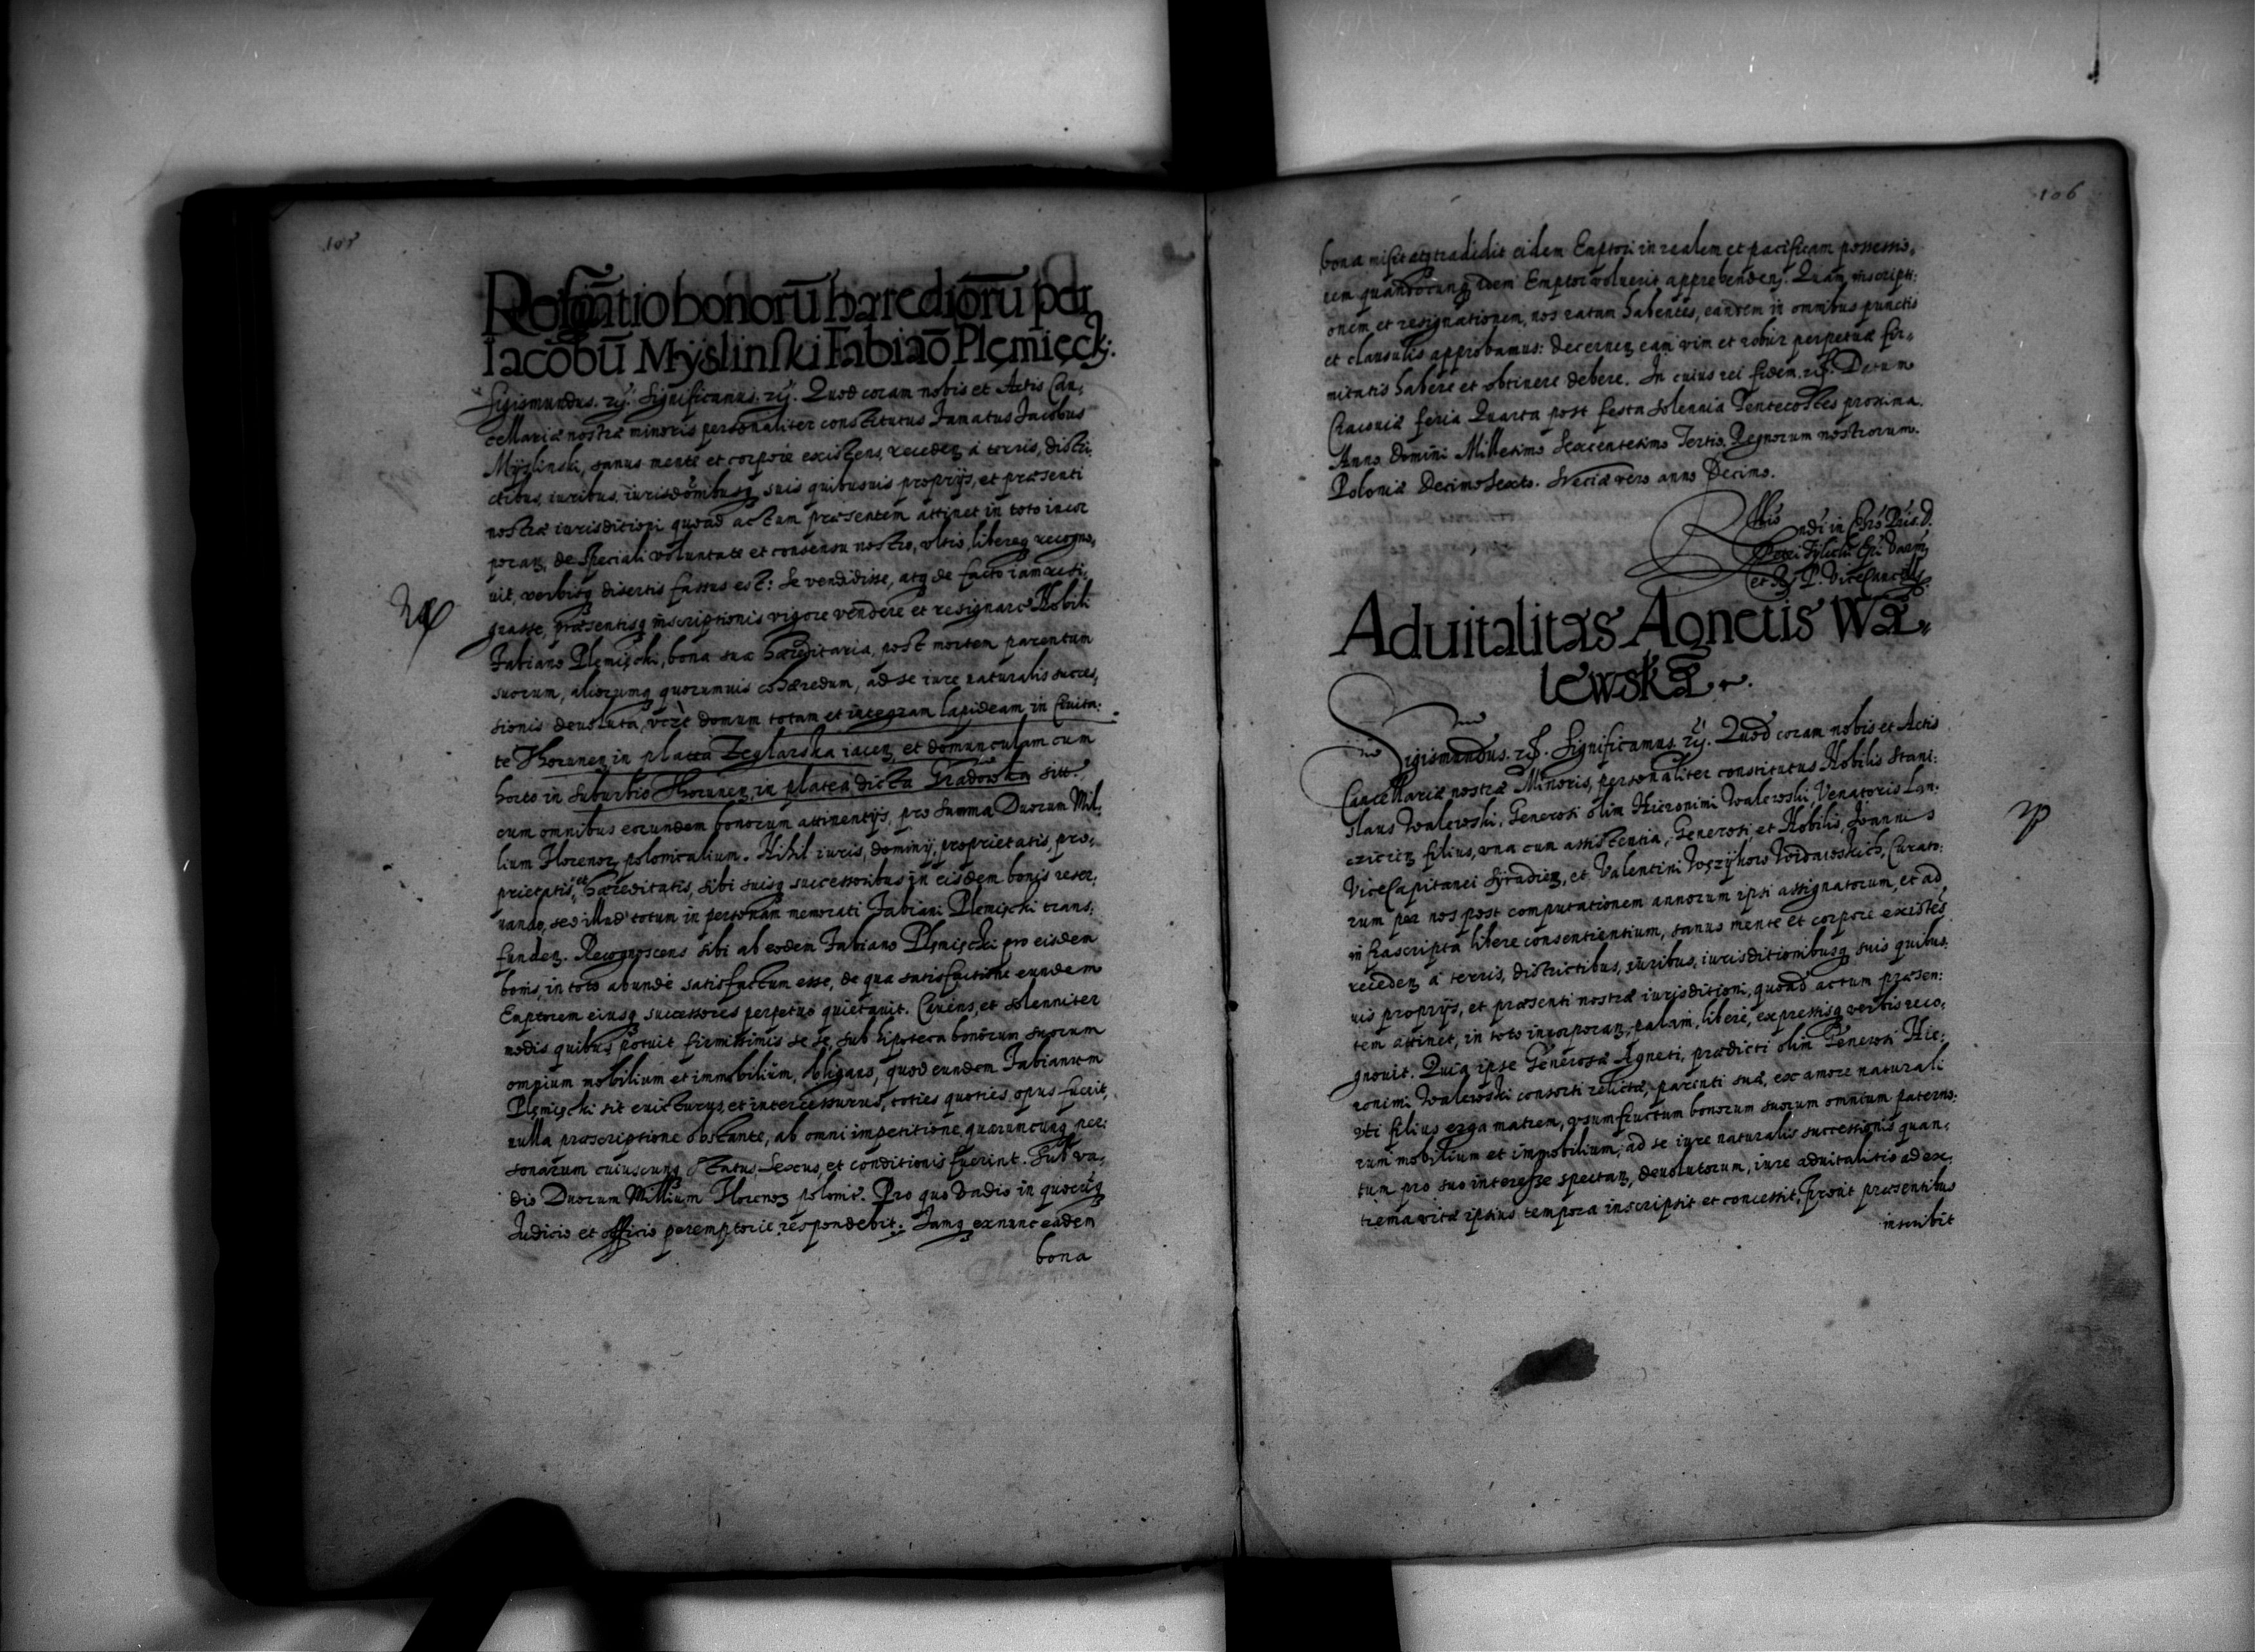 105
Resignatio bonorū hæredioru per
Iacobū Mÿslinski Fabiaō Plęmięck:
Sigismundus. rẽ. Significamus. rẽ. Quod coram nobis et Actis Can,
cellariæ nostræ minoris personaliter constitutus Famatus Jacobus
Mÿslinski, sanus mente et corpore existens, receden à terris, distri,
ctibus, iuribus, iurisdōmbusq suis quibusuis proprijs, et præsenti
nostræ iurisditioni quoad actum præsentem attinet in toto incor
poran, de speciali voluntate et consensu nostro, vltro, libereq recogno,
uit, verbisq disertis fassus est: Se vendidisse, atq de facto iam resi,
gnasse, præsentisq inscriptionis vigore vendere et resignare Nobili
Fabiano Plęmięcki, bona sua hæreditaria, post mortem parentum
suorum, aliorumq quorumuis cohæredum, ad se iure naturalis succes,
sionis deuoluta, vczt domum totam et integram lapideam in Ciuita:
te Thorunen in platea Zeglarska iacen, et domunculam cum
horto in suburbio Thorunen, in platea dicta Gradowska sitt.
cum omnibus eorundem bonorum attinentijs, pro summa Duorum Mil,
lium Florenor polonicalium. Nihil iuris, dominij, proprietatis, pro,
prietatis, et hæreditatis, sibi suisq successoribus in eisdem bonis reser,
uando, sed illud totum in personam memorati Fabiani Plemięcki trans,
funden. Recognoscens sibi ab eodem Fabiano Plęmięcki pro eisdem
bonis, in toto abunde satisfactum esse, de qua satisfactione eundem
Emptorem eiusq successores perpetuo quietauit. Cauens, et solenniter
modis quibus potuit firmissimis se se, sub hipoteca bonorum suorum
omnium mobilium et immobilium, obligans, quod eundem Fabianum
Plęmięcki sit euicturus, et intercessurus, toties quoties opus fuerit,
nulla præscriptione obstante, ab omni impetitione quaruncunq per:
sonarum cuiuscunq status, sexus, et conditionis fuerint. Sub va,
dio Duorum Millium Florenor polonic. Pro quo Vadio in quocūq
Iudicio et officio peremptorie respondebit. Iamq exnunc eadem
bona
106
bona misit atq tradidit eidem Emptori in realem et pacificam possessio,
nem quandocunq idem Emptor voluerit apprehenden. Quam inscripti:
onem et resignationem, nos ratam habentes, eandem in omnibus punctis
et clausulis approbamus: decernen eam vim et robur perpetuæ fir,
mitatis habere et obtinere debere. In cuius rei fidem. rẽ. Datum
Cracouiæ feria Quarta post festa solennia Pentecostes proxima.
Anno Domini Millesimo Sexcentesimo Tertio. Regnorum nostrorum.
Poloniæ Decimo Sexto. Sveciæ vero anno Decimo.
Rllio
ndi in Chrō Pris. d.
Petri Tÿlicki Epi Varm
et R. P. Vicecancell.
Aduitalitas Agnetis Wa,
lewska.
Sigismundus. rẽ. Significamus. rẽ. Quod coram nobis et Actis
Cancellariæ nostræ Minoris, personaliter constitutus Nobilis Stani:
slaus Walewski, Generosi olim Hieronimi Walewski, Venatoris Lan,
cicien filius, vna cum assistentia, Generosi, et Nobilis, Joannis
ViceCapitanei Syradien, et Valentini Wojdawskich, Curato:
rum per nos post computationem annorum ipsi assignatorum, et ad
infrascripta libere consentientium, sanus mente et corpore existēs
receden à terris, districtibus, iuribus, iurisditionibusq suis quibus,
uis proprijs, et præsenti nostræ iurisditioni, quoad actum præsen:
tem attinet, in toto incorporan, palam, libere, expressisq verbis reco,
gnouit. Quia ipse Generosæ Agneti, prædicti olim Generosi Hie,
ronimi Walewski consorti relictæ, parenti suæ, ex amore naturali
vti filius erga matrem, vsumfructum bonorum suorum omnium paterno:
rum mobilium et immobilium, ad se iure naturalis successionis quan,
tum pro suo interesse spectan, deuolutorum, iure aduitalitio ad ex,
trema vitæ ipsius tempora inscripsit et concessit, Prout præsentibus
inscribit